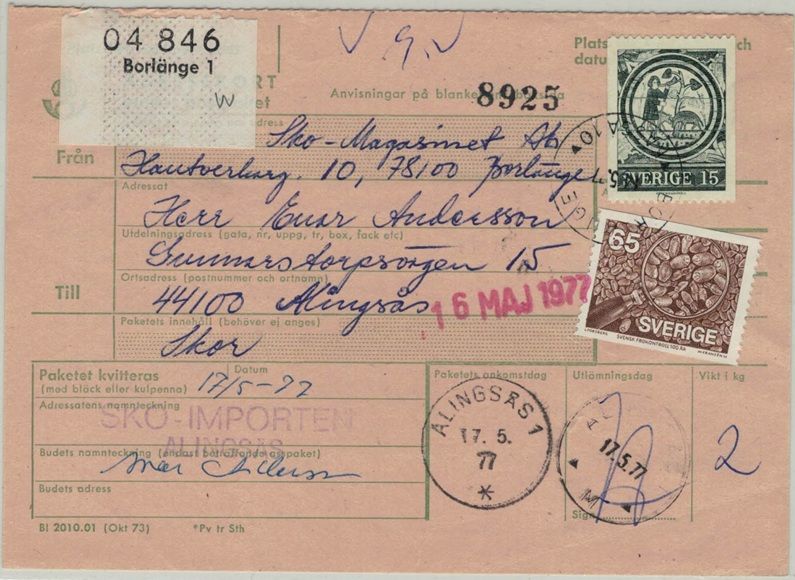 04 846
Borlänge 1
W
Plats
och
datu
RT
et
Anvisningar på blanke
8925
adress
Från
Sko-Magasinet Ab
10, 78100 Borlänge
Adressat
Herr Enar Andersson
Utdelningsadress (gata, nr, uppg, tr, box, fack etc)
Gunnarstorpsvägen 15
Ortsadress (postnummer och ortnamn)
Till
44100 Alingsås
16 MAJ 1977
Paketets innehåll (behöver ej anges)
Skor
SVERIGE 15
65
SVERIGE
SVENSK FRÖKONTROLL 100 ÅR
Paketet kvitteras
(med bläck eller kulpenna)
Datum
17/5-77
Paketets ankomstdag
Utlämningsdag
Vikt i kg
Adressatens namnteckning
SKO-IMPORTEN
ALINGSÅS
Budets namnteckning (endast beträffande paket)
Budets adress
ALINGSÅS 1
17. 5.
77
17.5.77
M
2
Sign
Bl 2010.01 (Okt 73) *Pv tr Sth